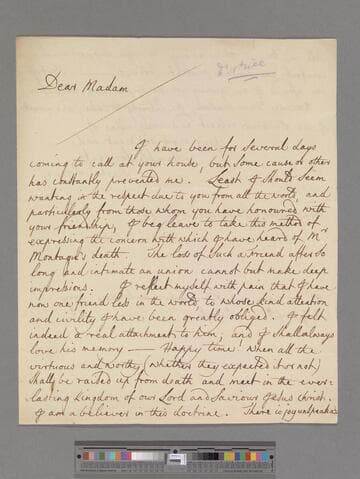 Dr Price
Dear Madam
I have been for several days
coming to call at your house, but some cause or other
has constantly prevented me. Least I should seem
wanting in the respect due to you from all the world, and
particularly from those whom you have honoured with
your friendship, I beg leave to take this method of
expressing the concern with which I have heard of Mr
Montagu's death. The loss of such a friend after so
long and intimate an union cannot but make deep
impressions. I reflect myself with pain that I have
now one friend less in the world to whose kind attention
and civility I have been greatly obliged. I felt
indeed a real attachment to him, and I shall always
love his memory — Happy time! when all the
virtuous and worthy (whether they expected it or not)
shall be raised up from death and meet in the ever-
lasting kingdom of our Lord and Saviour Jesus Christ.
I am a believer in this doctrine. There is joy unspeakable